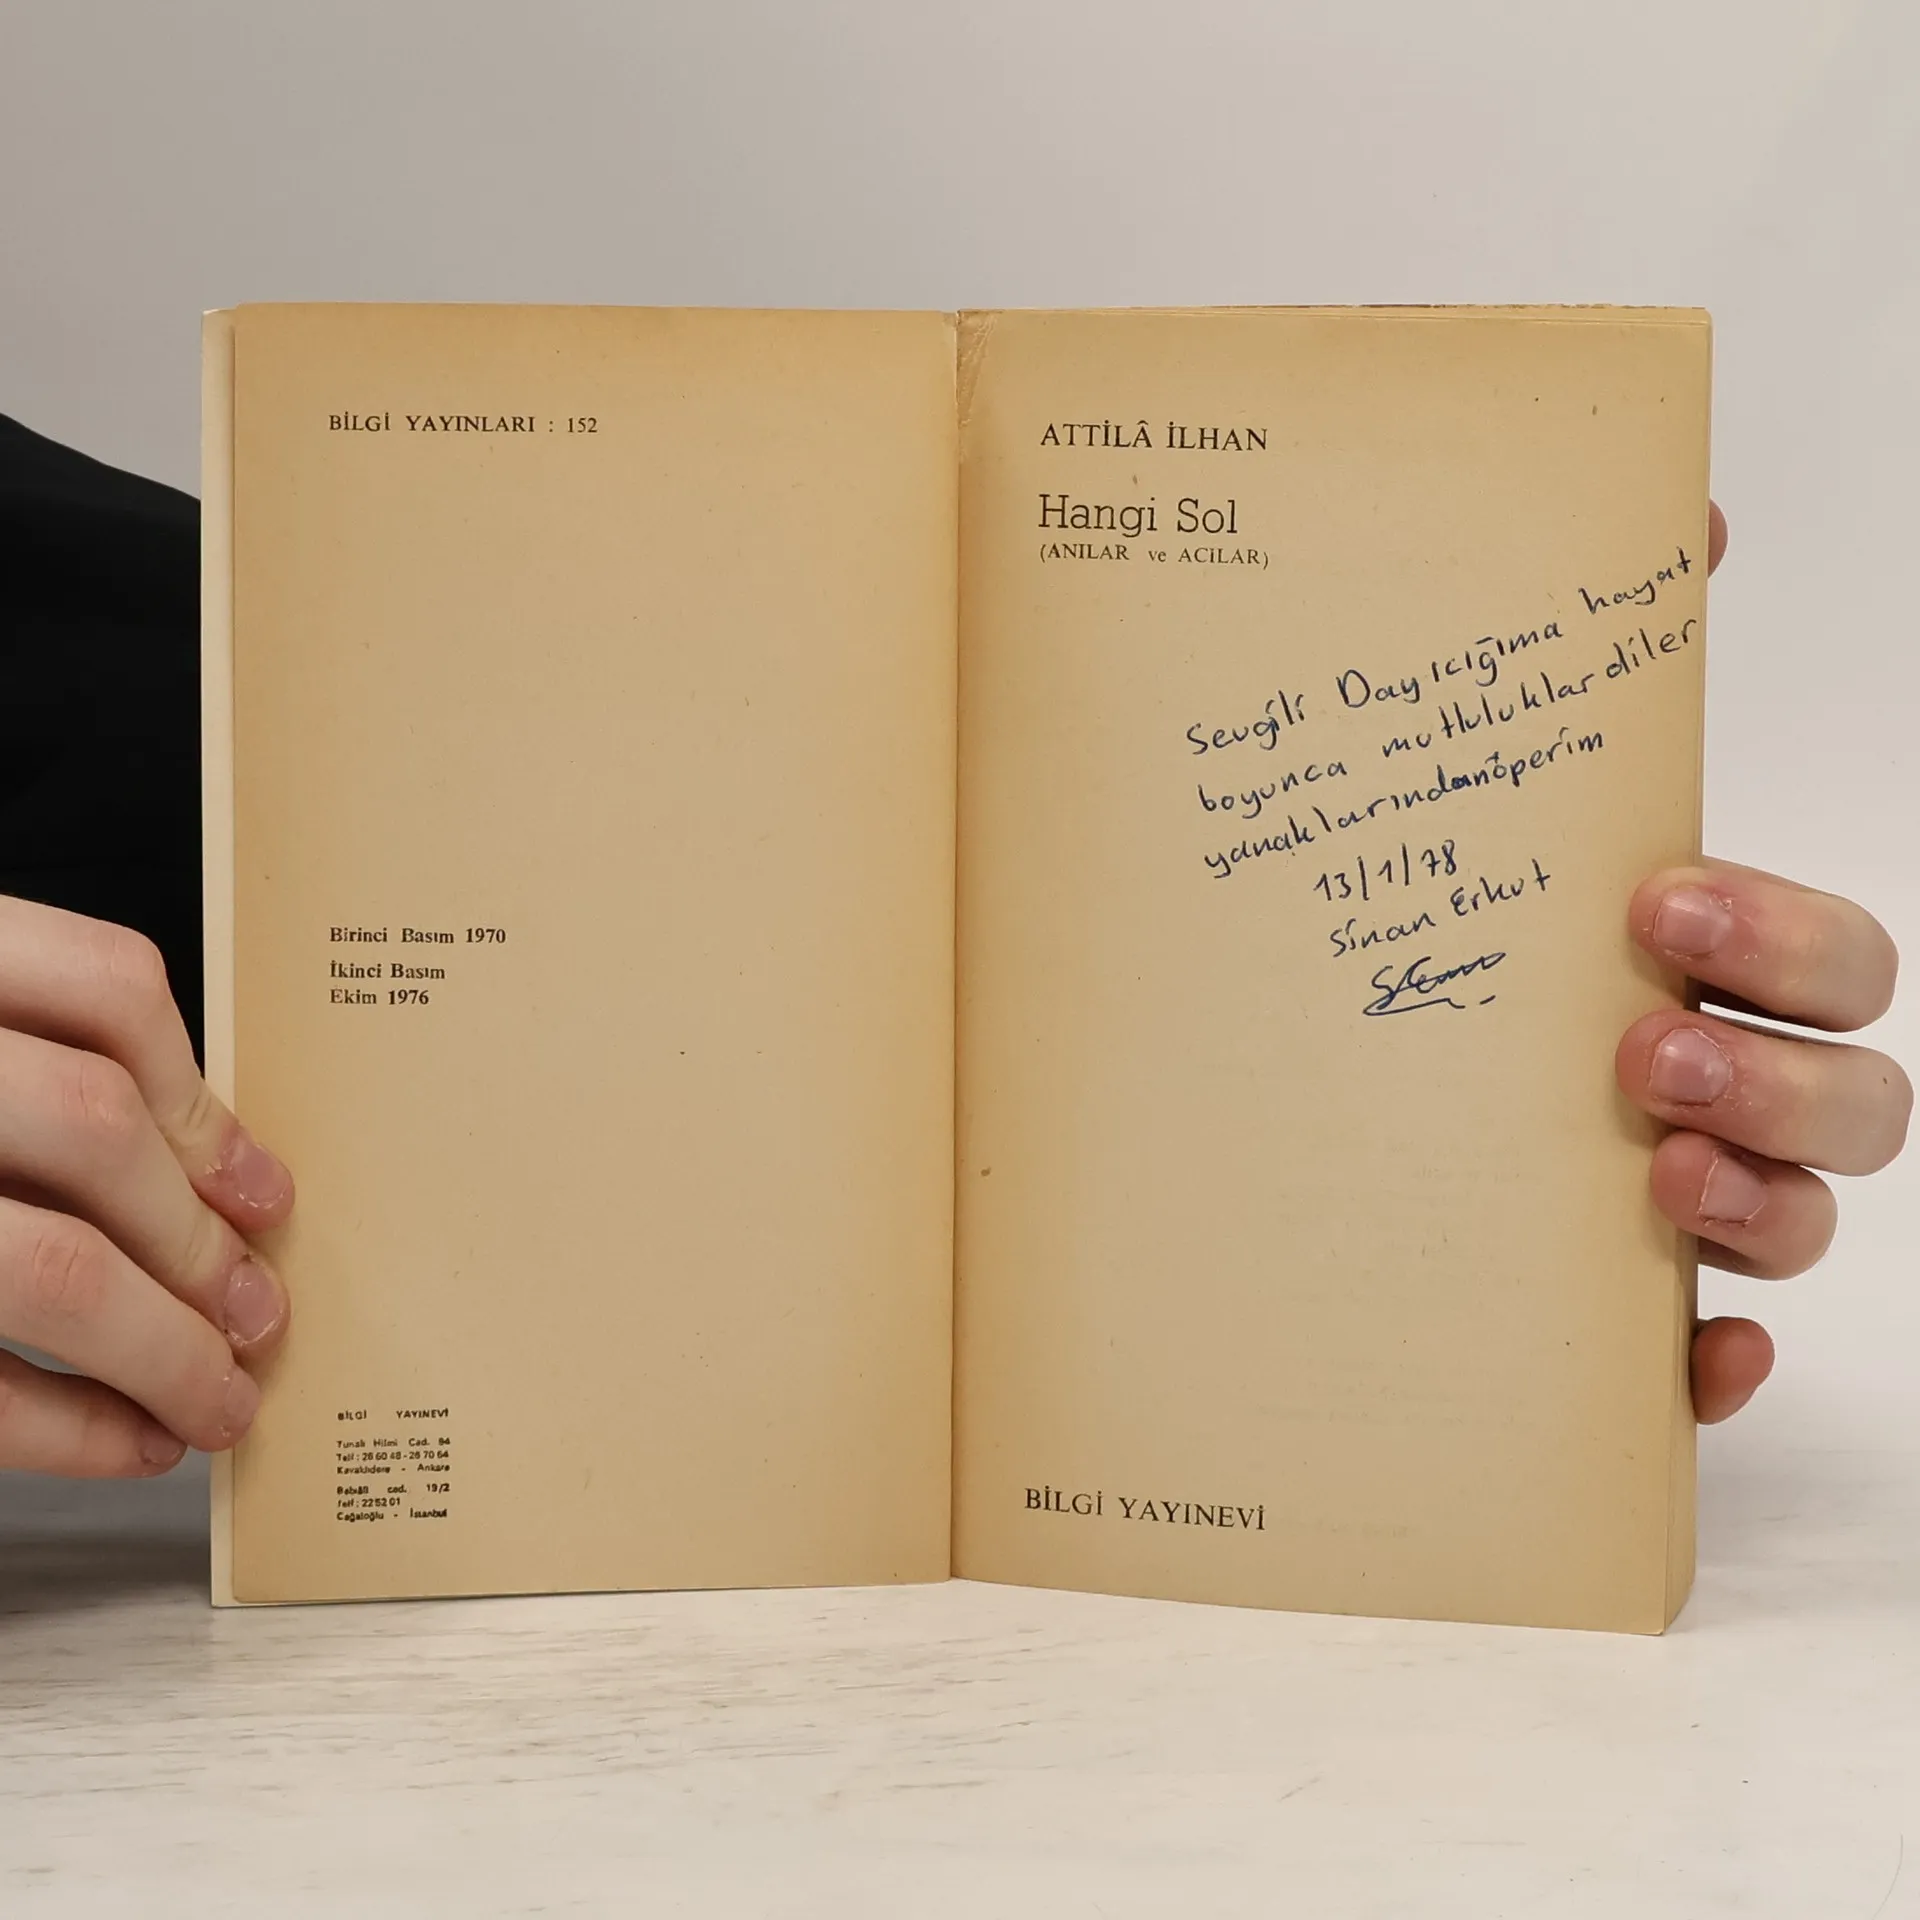 BİLGİ YAYINLARI : 152
Birinci Basım 1970
İkinci Basım
Ekim 1976
BİLGİ YAYINEVİ
Tunalı Hilmi Cad. 84
Telf : 26 60 48 - 26 70 64
Kavaklıdere - Ankara
Babıâli cad. 19/2
Telf : 22 52 01
Cağaloğlu - İstanbul
ATTİLÂ İLHAN
Hangi Sol
(ANILAR ve ACILAR)
Sevgili Dayıcığıma hayat
boyunca mutluluklar diler
yanaklarından öperim
13/1/78
Sinan Erkut
BİLGİ YAYINEVİ